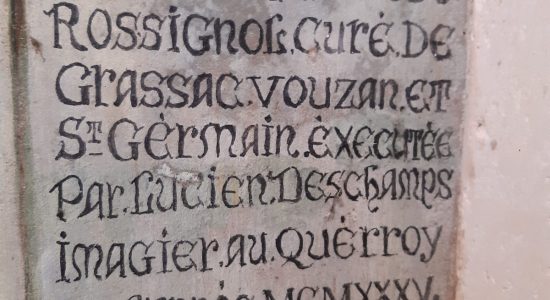 Rossignol.Curé.de
Grassac.Vouzan.et
St Gèrmain.èxecutée
Par.Lucien.Deschamps
imagier.au.Quèrroy
année MCMXXXV